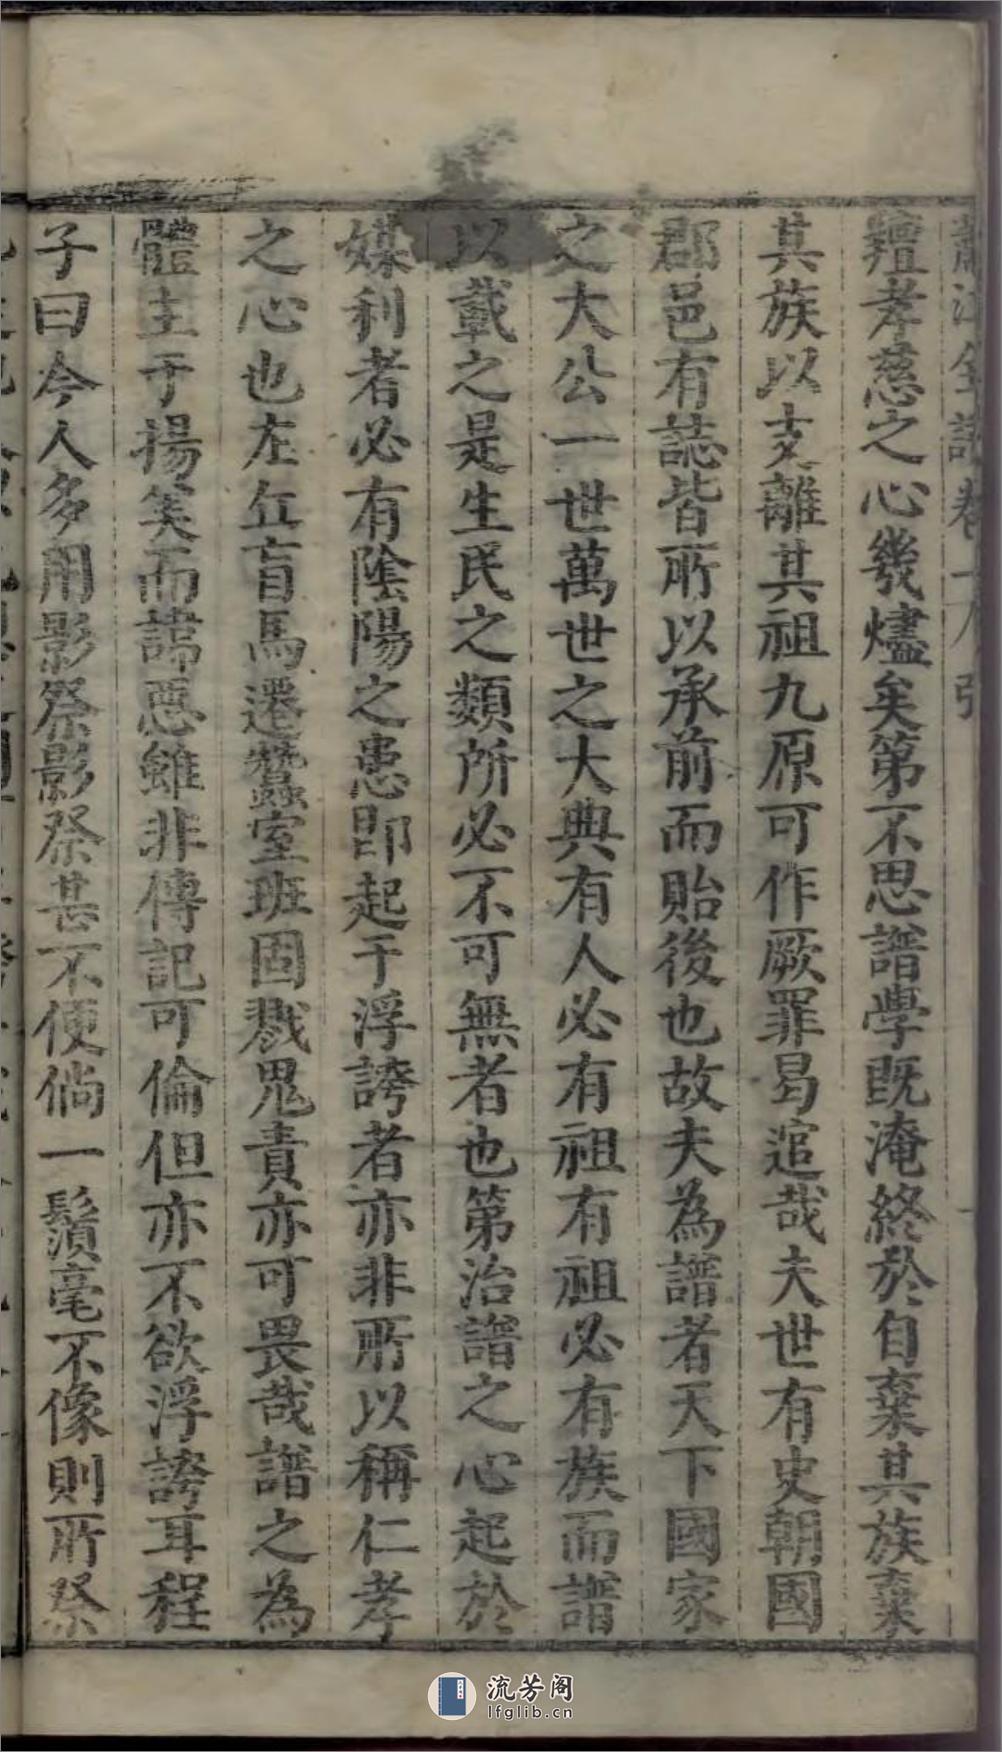 羶孝慈之心幾燼矣第不思譜學既淹終於自棄其族棄
其族以支離其祖九原可作厥罪曷逭哉夫世有史朝國
郡邑有誌皆所以承前而貽後也故夫為譜者天下國家
之大公一世萬世之大典有人必有祖有祖必有族而譜
以載之是生民之類所必不可無者也第治譜之心起於
媒利者必有陰陽之患即起于浮誇者亦非所以稱仁孝
之心也左丘盲馬遷蠶室班固戮鬼責亦可畏哉譜之為
體主于揚美而諱惡雖非傳記可倫但亦不欲浮誇耳程
子曰今人多用影祭影祭甚不便倘一鬚毫不像則所祭
流芳阁
lfglib.cn